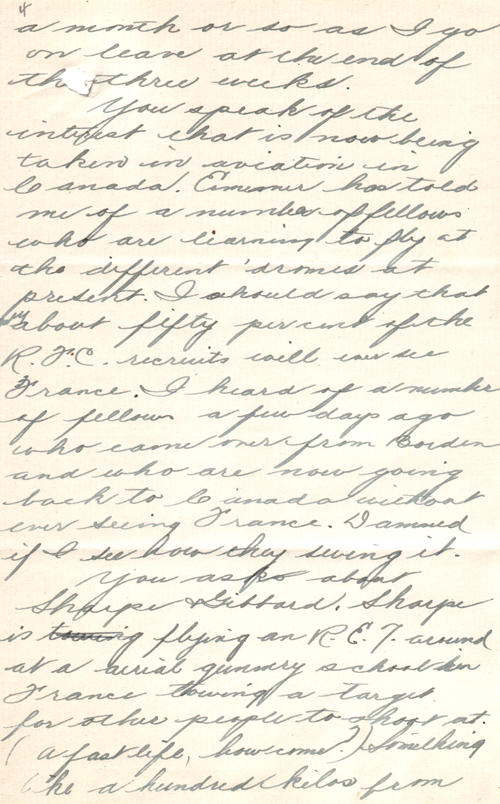 4
a month or so as I go
on leave at the end of
the three weeks.
You speak of the
interest that is now being
taken in aviation in
Canada. Emmner has told
me of a number of fellows
who are learning to fly at
the different 'dromes at
present. I should say that
about fifty per cent of the
R.F.C. recruits will ever see
France. I heard of a number
of fellows a few days ago
who came over from Borden
and who are now going
back to Canada without
ever seeing France. Damned
if I see how they swing it.
You asks about
Sharpe & Gibbard. Sharpe
is towing flying an R.E.7. around
at a aerial gunnery school in
France towing a target
for other people to shoot at.
(a fast life, how come?) Something
like a hundred kilos from